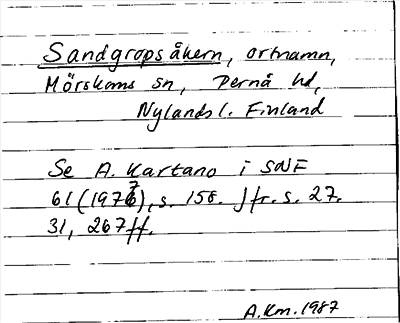 Sandgropsåkern, ortnamn,
Mörskoms sn, Pernå hd,
Nylands l. Finland
Se A. Kartano i SNF
61 (1977), s. 158. Jfr. s. 27.
31, 267 ff.
A.Km. 1987